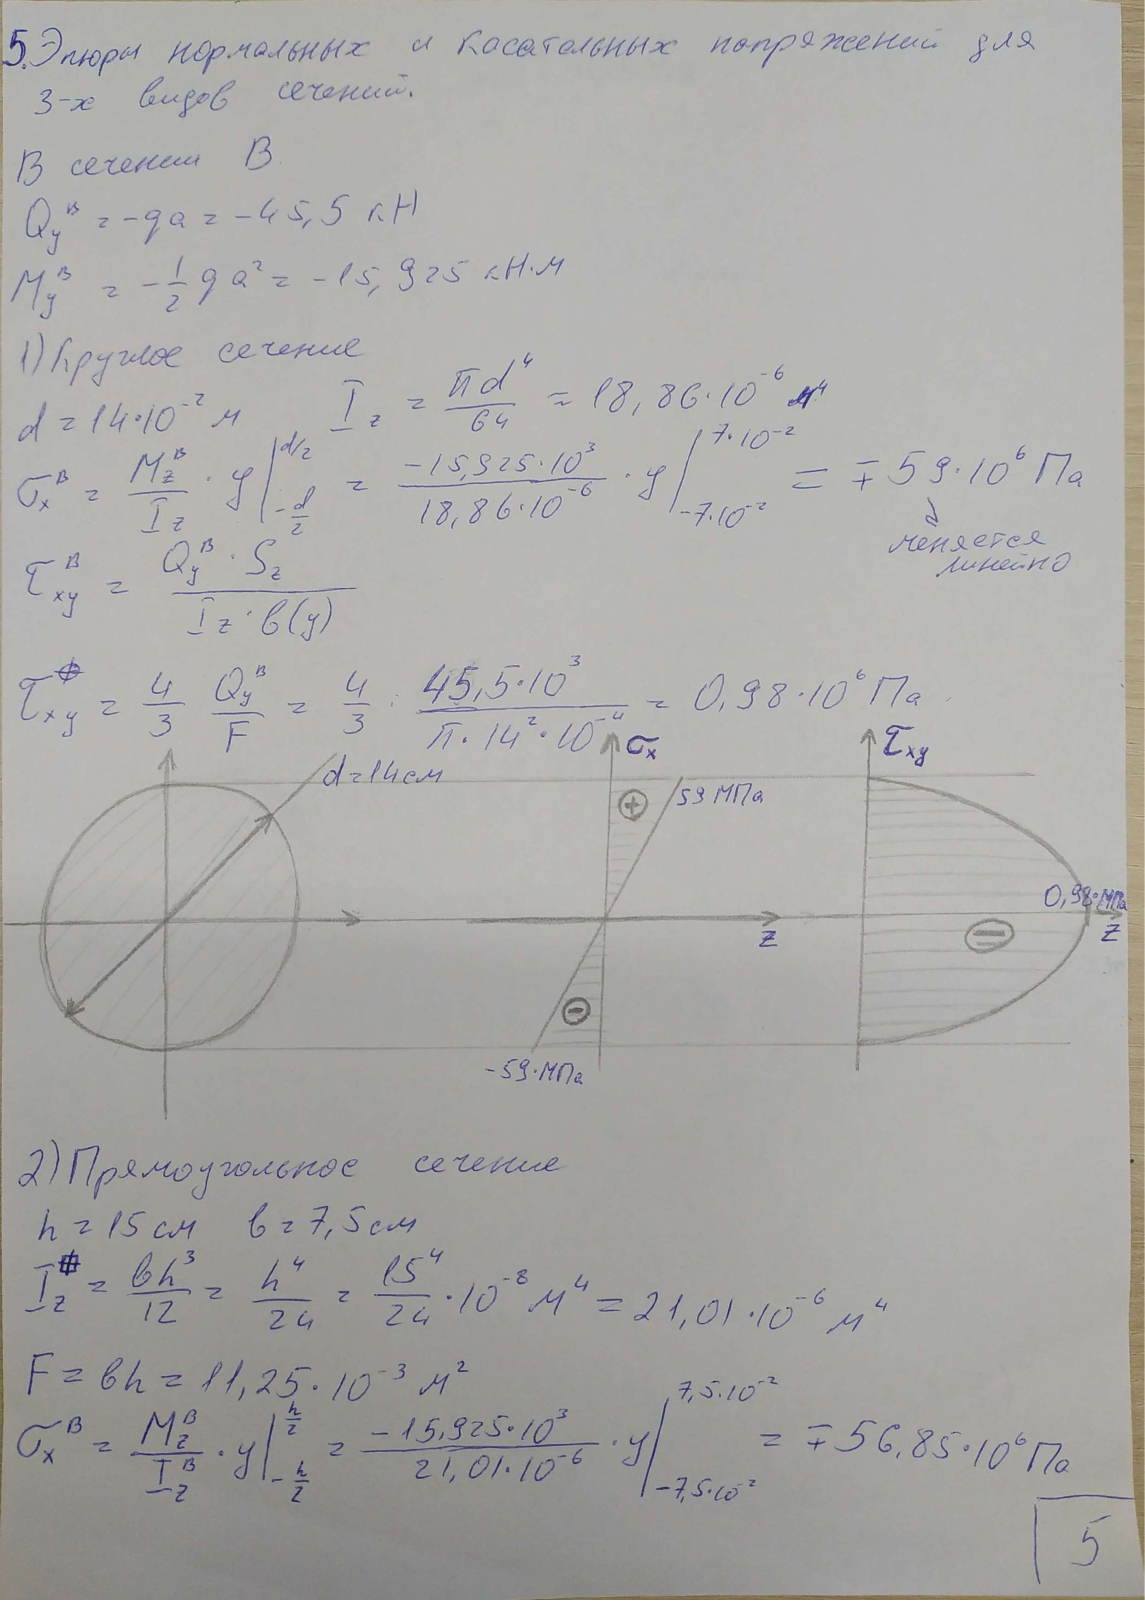 5. Эпюры нормальных и касательных напряжений для
3-х видов сечений.
В сечении B.
Q_y^B = -qa = -45,5 кН
M_y^B = -1/2 qa² = -15,925 кН·м
1) Круглое сечение
d = 14·10⁻² м I_z = πd⁴/64 = 18,86·10⁻⁶ м⁴
σ_x^B = M_z^B/I_z · y |_{-d/2}^{d/2} = -15,925·10³/18,86·10⁻⁶ · y |_{-7·10⁻²}^{7·10⁻²} = ∓59·10⁶ Па
меняется
линейно
τ_xy^B = Q_y^B · S_z / I_z · b(y)
τ_xy = 4/3 Q_y^B/F = 4/3 · 45,5·10³/π·14²·10⁻⁴ = 0,98·10⁶ Па
d = 14 см
σ_x
τ_xy
59 МПа
+
0,98·МПа
z
z
−
−
-59·МПа
2) Прямоугольное сечение
h = 15 см b = 7,5 см
I_z = bh³/12 = h⁴/24 = 15⁴/24 · 10⁻⁸ м⁴ = 21,01·10⁻⁶ м⁴
F = bh = 11,25·10⁻³ м²
σ_x^B = M_z^B/I_z^B · y |_{-h/2}^{h/2} = -15,925·10³/21,01·10⁻⁶ · y |_{-7,5·10⁻²}^{7,5·10⁻²} = ∓56,85·10⁶ Па
5